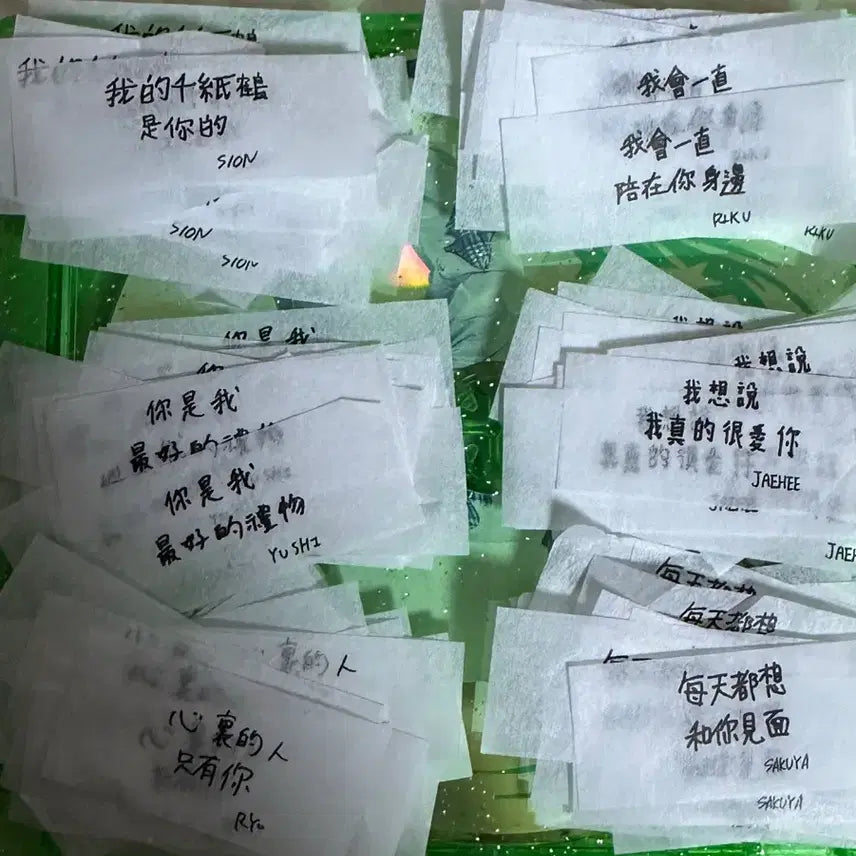 我的千紙鶴
是你的
SION
SION
SION
我會一直
我會一直
陪在你身邊
RIKU
RIKU
你是我
你是我
最好的禮物
你是我
最好的禮物
YUSHI
我想說
我想說
我想說
我真的很愛你
JAEHEE
JAEHEE
JAEH
裏的人
心裏的人
只有你
RYO
每天都想
每天都想
每天都想
和你見面
SAKUYA
SAKUYA